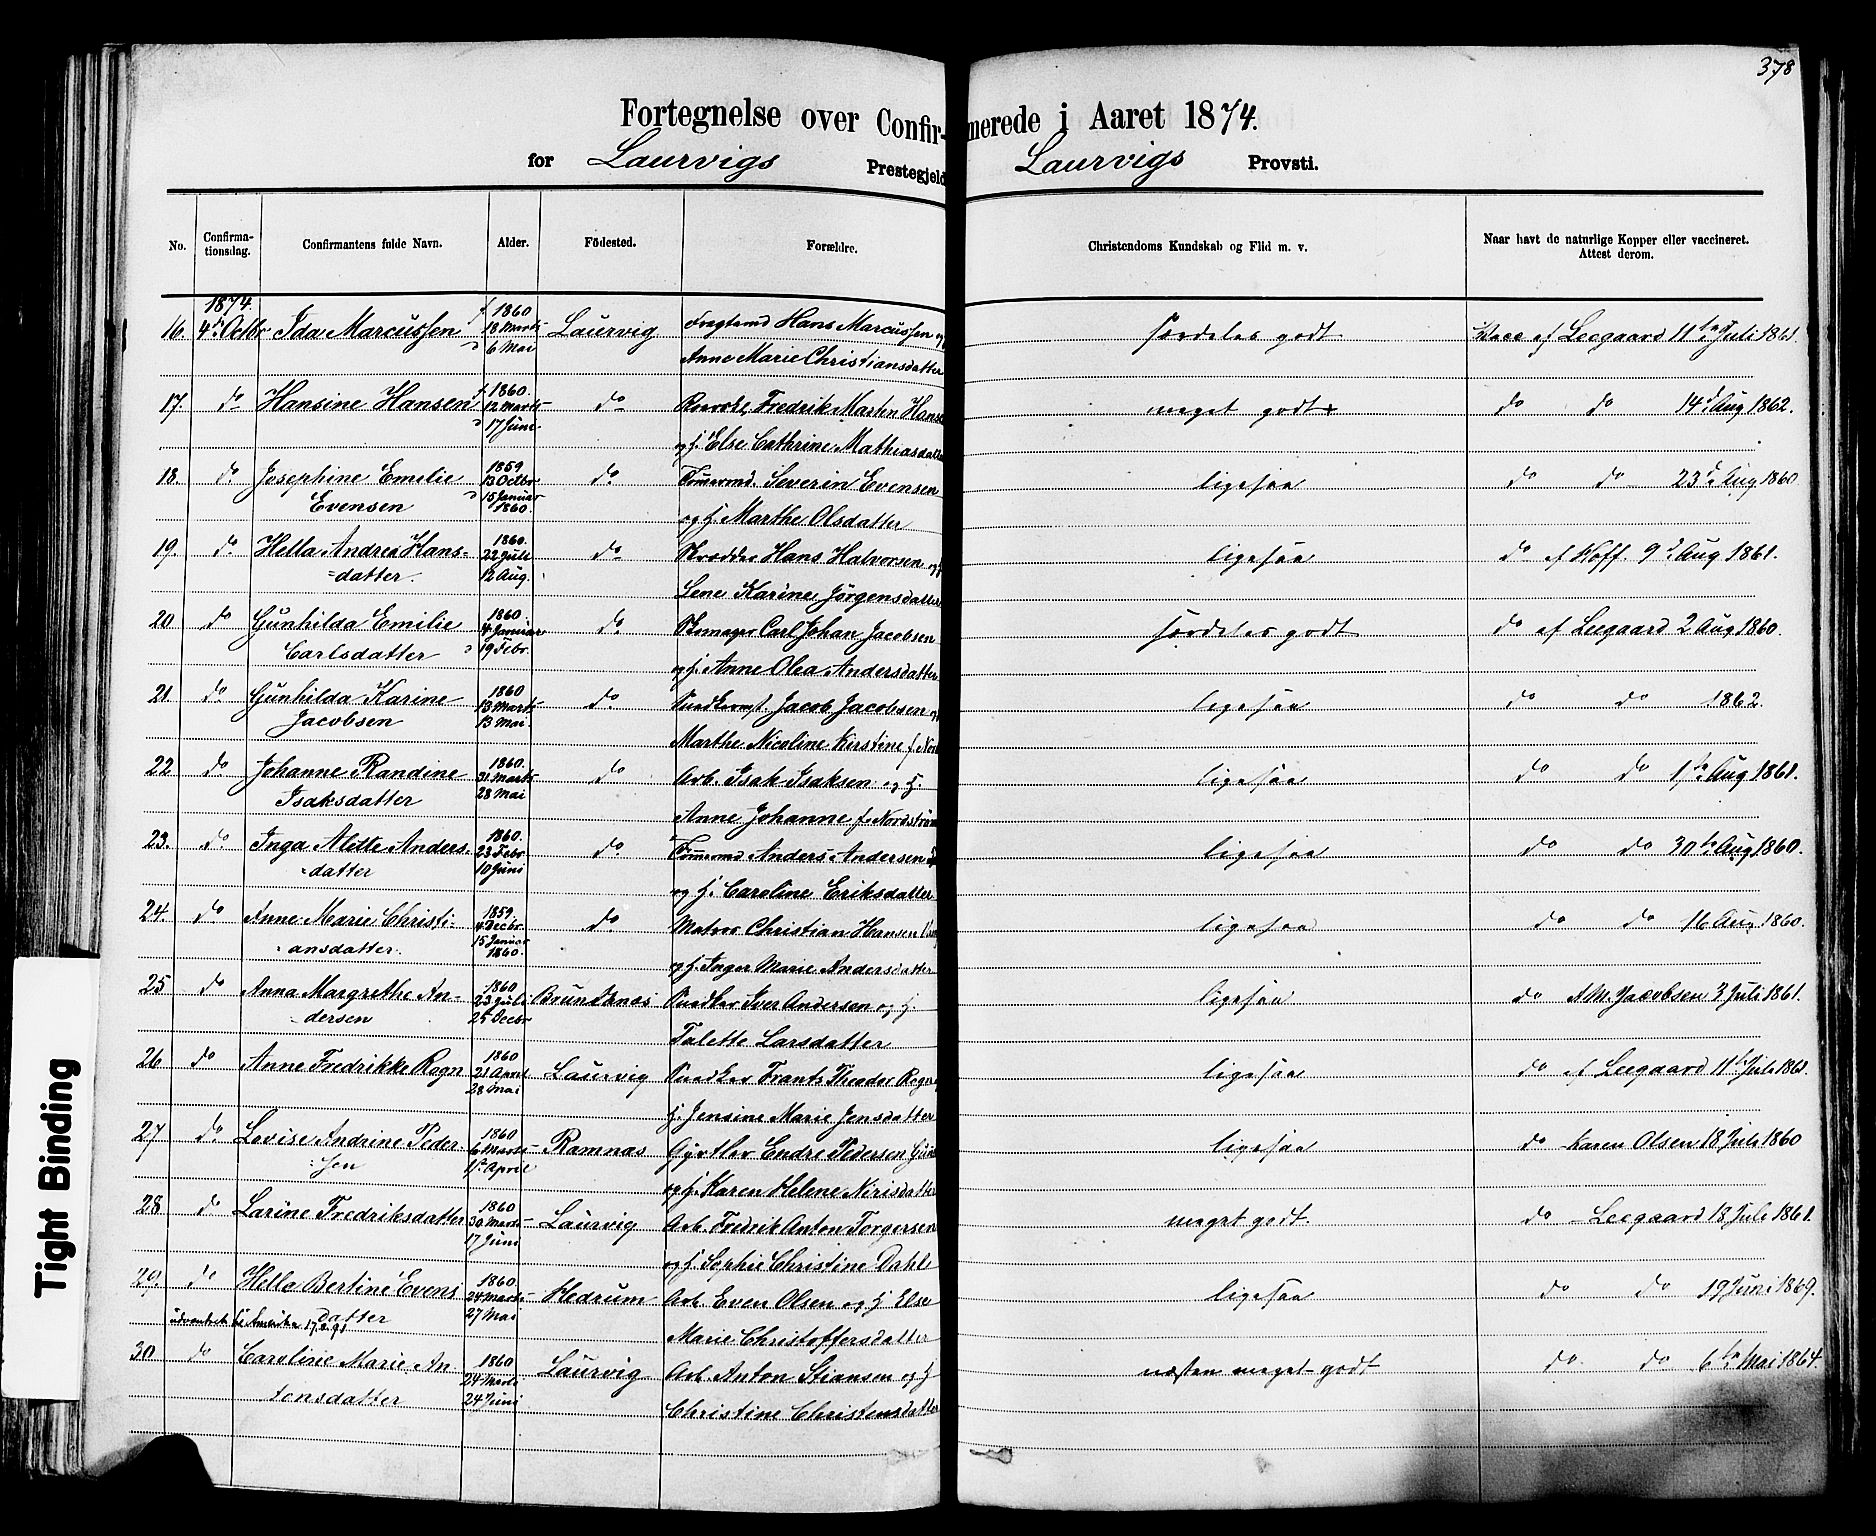 378
Fortegnelse over Confirmerede i Aaret 1874.
for Laurvigs Prestegjeld Laurvigs Provsti.
No. Confirmationsdag. Confirmantens fulde Navn. Alder. Födested. Forældre. Christendoms Kundskab og Flid m. v. Naar havt de naturlige Kopper eller vaccineret. Attest derom.
1874. f. 1860
16. 4de Octbr Ida Marcussen 18 Marts Laurvig Hans Marcussen og særdeles godt Vacc af Leegaard 11te Juli 1861.
6 Mai Anne Marie Christiansdatter
f. 1860.
17. do Hansine Hansen 12 Marts do Fredrik Martin meget godt do do 14d Aug 1862.
17 Juni og h. Else Cathrine Mathiasdatter
1859
18. do Josephine Emilie 13 Octbr do Tömmermd. Severin Evensen ligesaa do do 23d Aug 1860
Evensen 15 Januar 1860. og h. Marthe Olsdatter
1860.
19. do Hella Andrea Hans- 22 Juli do Skrædder Hans Halvorsen og ligesaa do af Hoff. 9d Aug 1861.
=datter. 12 Aug. Lene Karine Jörgensdatter
1860
20 do Gunhilda Emilie 4 Januar do Skomager Carl Johan Jacobsen særdeles godt do af Leegaard 2 Aug 1860.
Carlsdatter 19 Febr. og h. Anne Olea Andersdatter
1860
21 do Gunhilda Karine 13 Marts do Jacob Jacobsen og ligesaa do do 1862.
Jacobsen 13 Mai Marthe Nicoline Kirstine f.
1860.
22 do Johanne Randine 31 Marts do Arb. Isak Isaksen og h. ligesaa do do 1ste Aug 1861.
Isaksdatter 28 Mai Anne Johanne f. Nordström
1860.
23. do Inga Alette Anders- 23 Febr do Tömmermd Anders Andersen ligesaa do do 30te Aug 1860.
=datter 10 Juni og h. Caroline Eriksdatter
1859.
24. do Anne Marie Christi- 4 Decbr. do Matros Christian Hansen ligesaa do do 16 Aug 1860.
=ansdatter. 15 Januar 1860. og h. Inger Marie Andersdatter
1860
25 do Anna Margrethe An- 23 Juli Brundknæs Snedker Iver Andersen og h. ligesaa do A M. Jacobsen 3 Juli 1861.
dersen 25 Decbr Talette Larsdatter
1860
26 do Anne Fredrikke Rogn 21 April Laurvig Snedker Frants Theodor Rogn ligesaa do af Leegaard 11te Juli
28 Mai h. Jensine Marie Jensdatter
1860
27 do Lovise Andrine Peder- 6 Marts Ramnæs Gjörtler Endre Pedersen ligesaa do Karen Olsen 18 Juli 1860
=sen 1ste April og h. Karen Helene Nirisdatter
1860
28 do Larine Fredriksdatter 30 Marts Laurvig Arb. Fredrik Anton Torgersen meget godt. do Leegaard 18 Juli 1861.
17 Juni og h. Sophie Christine Dahl
1860
29. do Hella Bertine Evens 24 Marts Hedrum Arb. Even Olsen og h. Else ligesaa do do 19 Juni 1869.
udvandret til Amerika datter 27 Mai Marie Christoffersdatter
1860
30 do Caroline Marie An- 24 Marts Laurvig Arb. Anton Stiansen og h næsten meget godt do do 6te Mai 1864.
tonsdatter 24 Juni Christine Christensdatter
Tight Binding